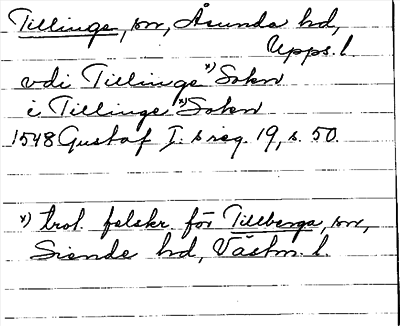 Tillinge, sn, Åsunda hd,
Upps. l.
vdi Tillinge x) Sokn
i Tillinge x) Sokn
1548 Gustaf I:s reg. 19, s. 50.
x) trol. felskr. för Tillberga, sn,
Siende hd, Västm. l.